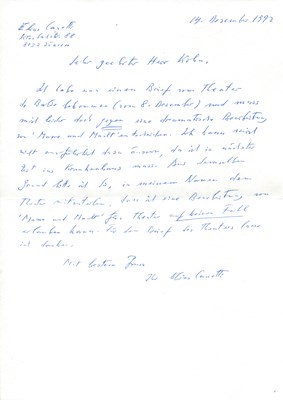 Elias Canetti
8032 Zürich
14. Dezember 1992
Sehr geehrter Herr Kohn,
Ich habe nun einen Brief vom Theater
de bekommen (vom 8. Dezember) und muss
mich leider doch gegen eine dramatische Bearbeitung
von "Masse und Macht" entscheiden. Ich kann mich
nicht dazu äussern, da ich in nächster
Zeit ins Krankenhaus muss. Aus demselben
Grund bitte ich Sie, in meinem Namen dem
Theater mitzuteilen, dass ich eine Bearbeitung von
"Masse und Macht" für Theater auf keinen Fall
erlauben kann. Für den Brief des Theaters lasse
ich danken.
Mit bestem Gruss
Ihr Elias Canetti